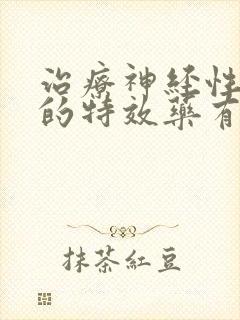 治療神経性
的特效藥有
抹茶紅豆